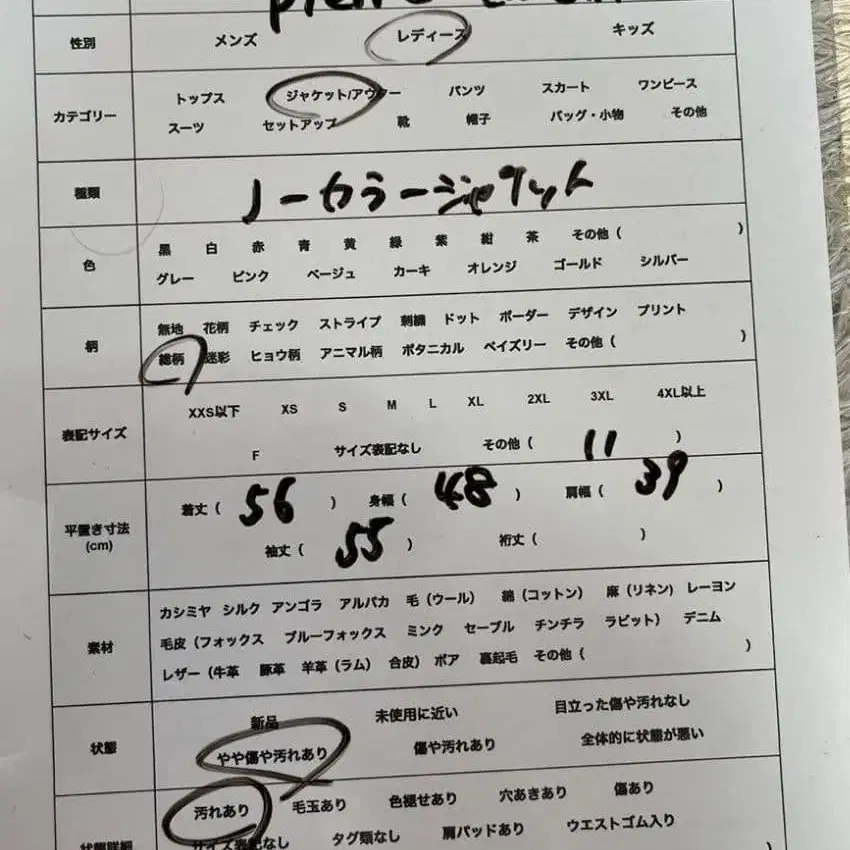 性別 メンズ レディース キッズ
トップス ジャケット/アウター パンツ スカート ワンピース
カテゴリー
スーツ セットアップ 靴 帽子 バッグ・小物 その他
種類 ノーカラージャケット
黒 白 赤 青 黄 緑 紫 紺 茶 その他 ( )
色
グレー ピンク ベージュ カーキ オレンジ ゴールド シルバー
無地 花柄 チェック ストライプ 刺繍 ドット ボーダー デザイン プリント
柄
総柄 迷彩 ヒョウ柄 アニマル柄 ボタニカル ペイズリー その他 ( )
XXS以下 XS S M L XL 2XL 3XL 4XL以上
表記サイズ
F サイズ表記なし その他 ( 11 )
着丈 ( 56 ) 身幅 ( 48 ) 肩幅 ( 39 )
平置き寸法
(cm)
袖丈 ( 55 ) 裄丈 ( )
カシミヤ シルク アンゴラ アルパカ 毛 (ウール) 綿 (コットン) 麻 (リネン) レーヨン
素材
毛皮 (フォックス ブルーフォックス ミンク セーブル チンチラ ラビット) デニム
レザー (牛革 豚革 羊革 (ラム) 合皮) ボア 裏起毛 その他 ( )
新品 未使用に近い 目立った傷や汚れなし
状態
やや傷や汚れあり 傷や汚れあり 全体的に状態が悪い
汚れあり 毛玉あり 色褪せあり 穴あきあり 傷あり
状態詳細
サイズ表記なし タグ類なし 肩パッドあり ウエストゴム入り
)